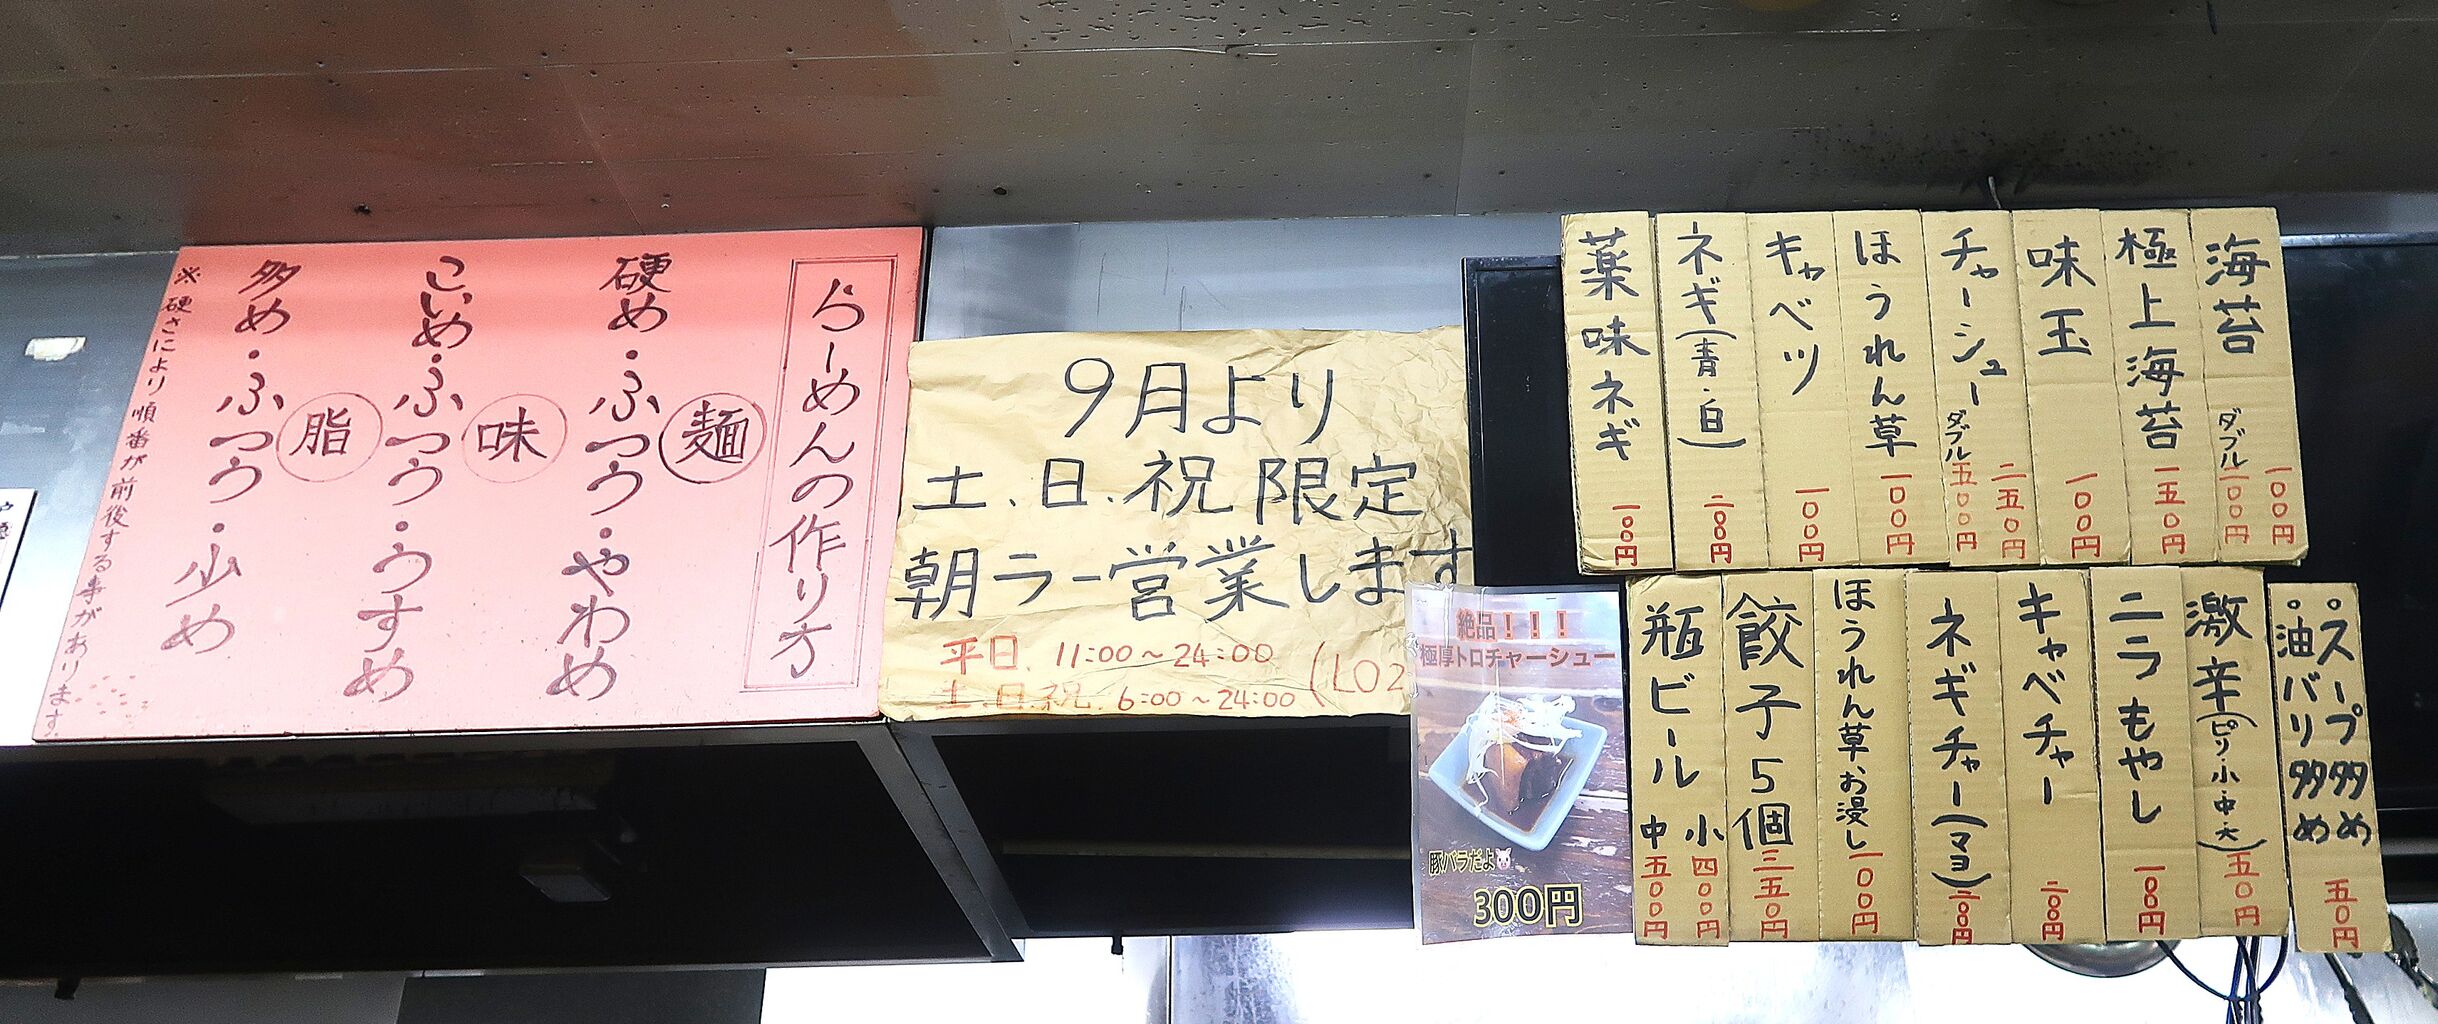 らーめんの作り方
麺
硬め・ふつう・やわめ
味
こいめ・ふつう・うすめ
脂
多め・ふつう・少め
※硬さにより順番が前後する事があります。
9月より
土.日.祝限定
朝ラー営業します
平日. 11:00～24:00
土.日.祝. 6:00～24:00 (LO2
海苔 一〇〇円
ダブル 二〇〇円
極上海苔 一五〇円
味玉 一〇〇円
チャーシュー 二五〇円
ダブル 五〇〇円
ほうれん草 一〇〇円
キャベツ 一〇〇円
ネギ(青・白) 二〇〇円
薬味ネギ 一〇〇円
絶品！！！
極厚トロチャーシュー
豚バラだよ
300円
・スープ多め
・油バリ多め
五〇円
激辛(ピリ・小・中・大) 五〇円
ニラもやし 一〇〇円
キャベチャー 二〇〇円
ネギチャー(マヨ) 二〇〇円
ほうれん草お浸し 一〇〇円
餃子5個 三五〇円
瓶ビール 小 四〇〇円
中 五〇〇円